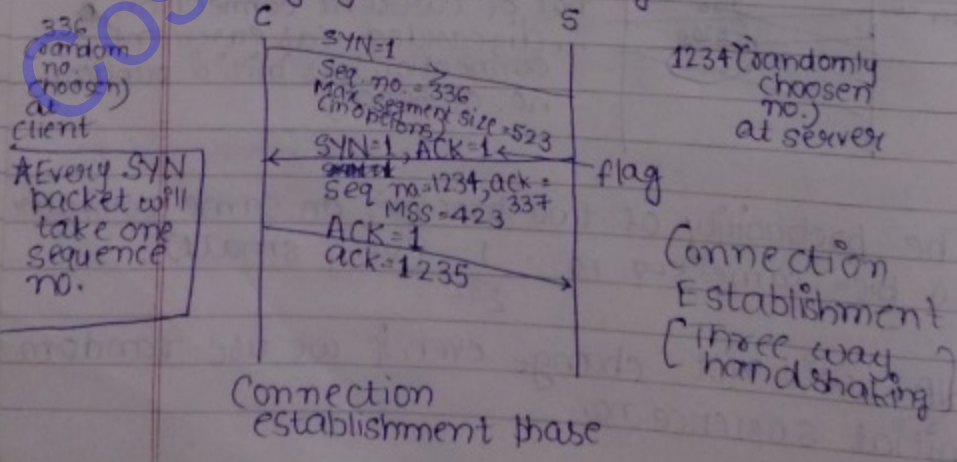 Cos
336
(random
no.
choosen)
at
client
*Every SYN
packet will
take one
sequence
no.
C
S
SYN=1
Seq. no.=336
Max Segment size=523
(in options)
SYN=1, ACK=1
Seq no=1234, ack=
337
MSS=423
ACK=1
ack=1235
flag
1234(randomly
choosen
no.)
at server
Connection
Establishment
[three way
handshaking]
Connection
establishment phase